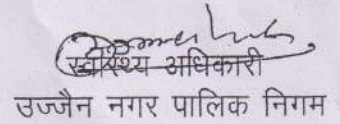 स्वास्थ्य अधिकारी
उज्जैन नगर पालिक निगम